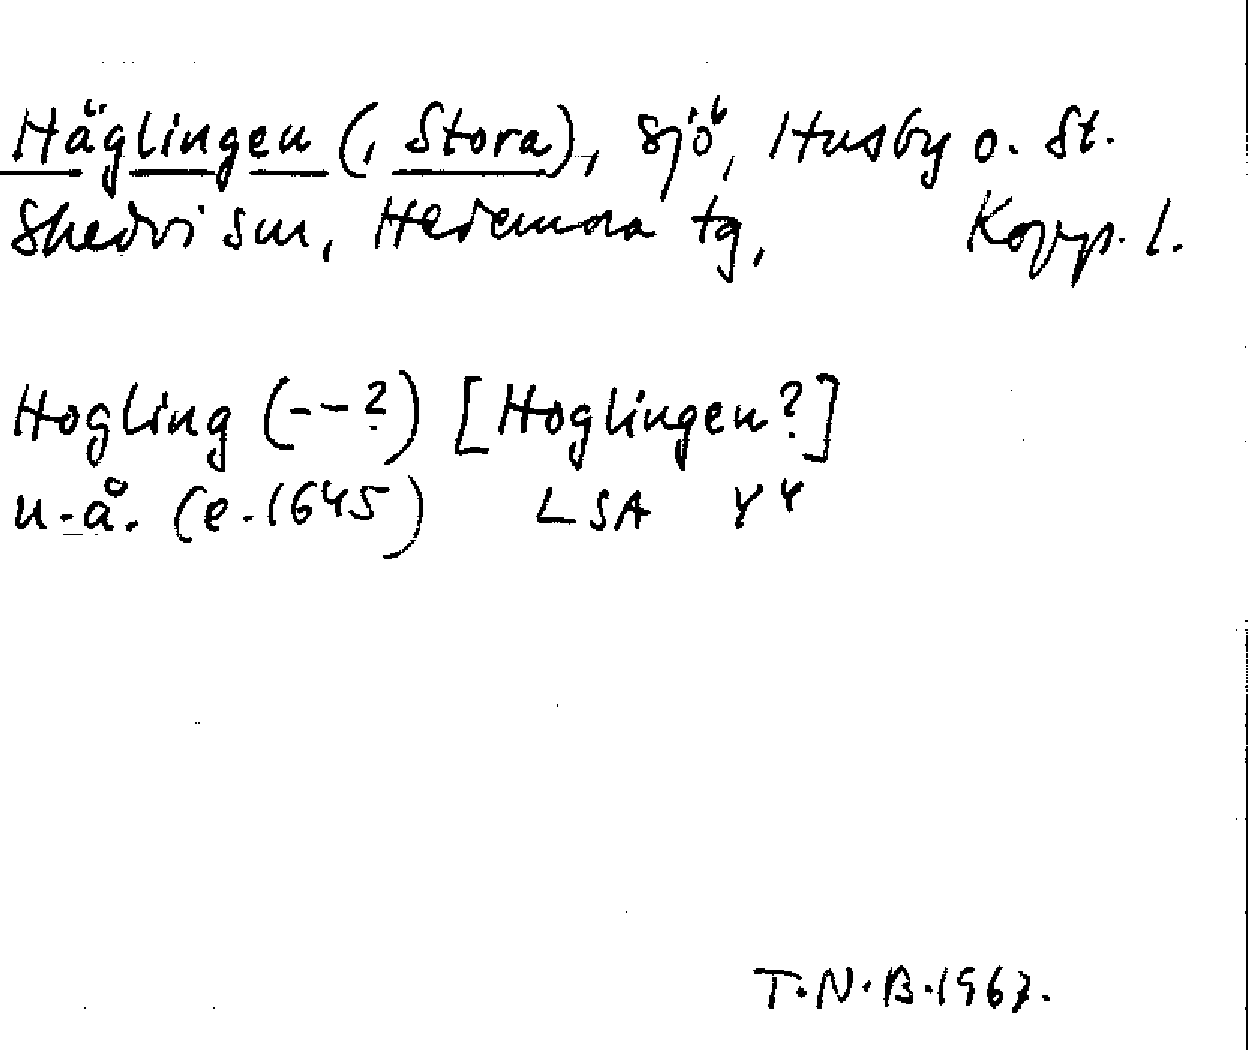 Häglingen (, Stora), sjö, Husby o. St.
Skedvi snr, Hedemora tg, Kopp. l.
Hogling (--?) [Hoglingen?]
u.å. (e. 1645) LSA Y4
T.N.B. 1967.